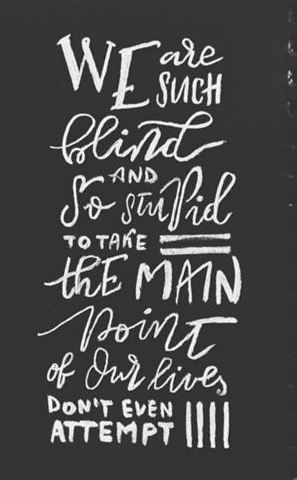 WE are
SUCH
blind
AND
So stuPid
TO TAKE
thE MAIN
Point
of Our lives
DON'T EVEN
ATTEMPT